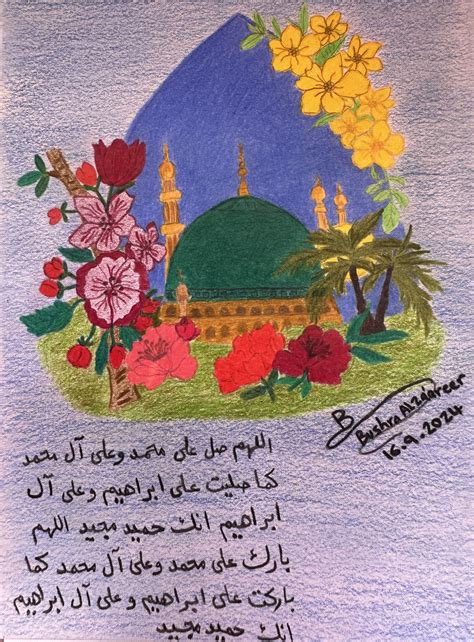 B
Bushra Alzdareer
16.9.2024
اللهم صل على محمد وعلى آل محمد
كما صليت على ابراهيم وعلى آل
ابراهيم انك حميد مجيد اللهم
بارك على محمد وعلى آل محمد كما
باركت على ابراهيم و على آل ابراهيم
انك حميد مجيد